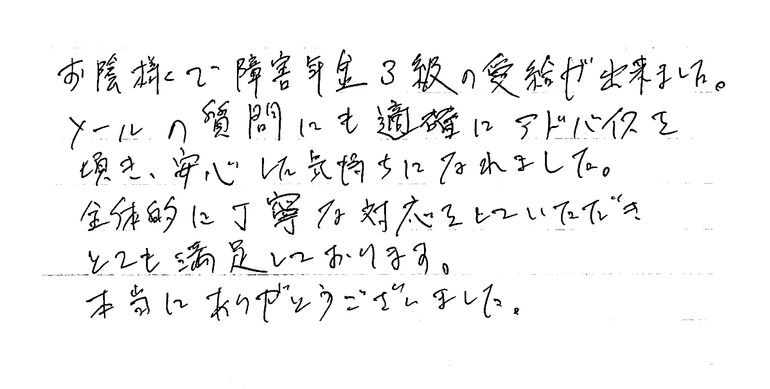 お陰様で障害年金3級の受給が出来ました。
メールの質問にも適確にアドバイスを
頂き、安心した気持ちになれました。
全体的に丁寧な対応をしていただき
とても満足しております。
本当にありがとうございました。